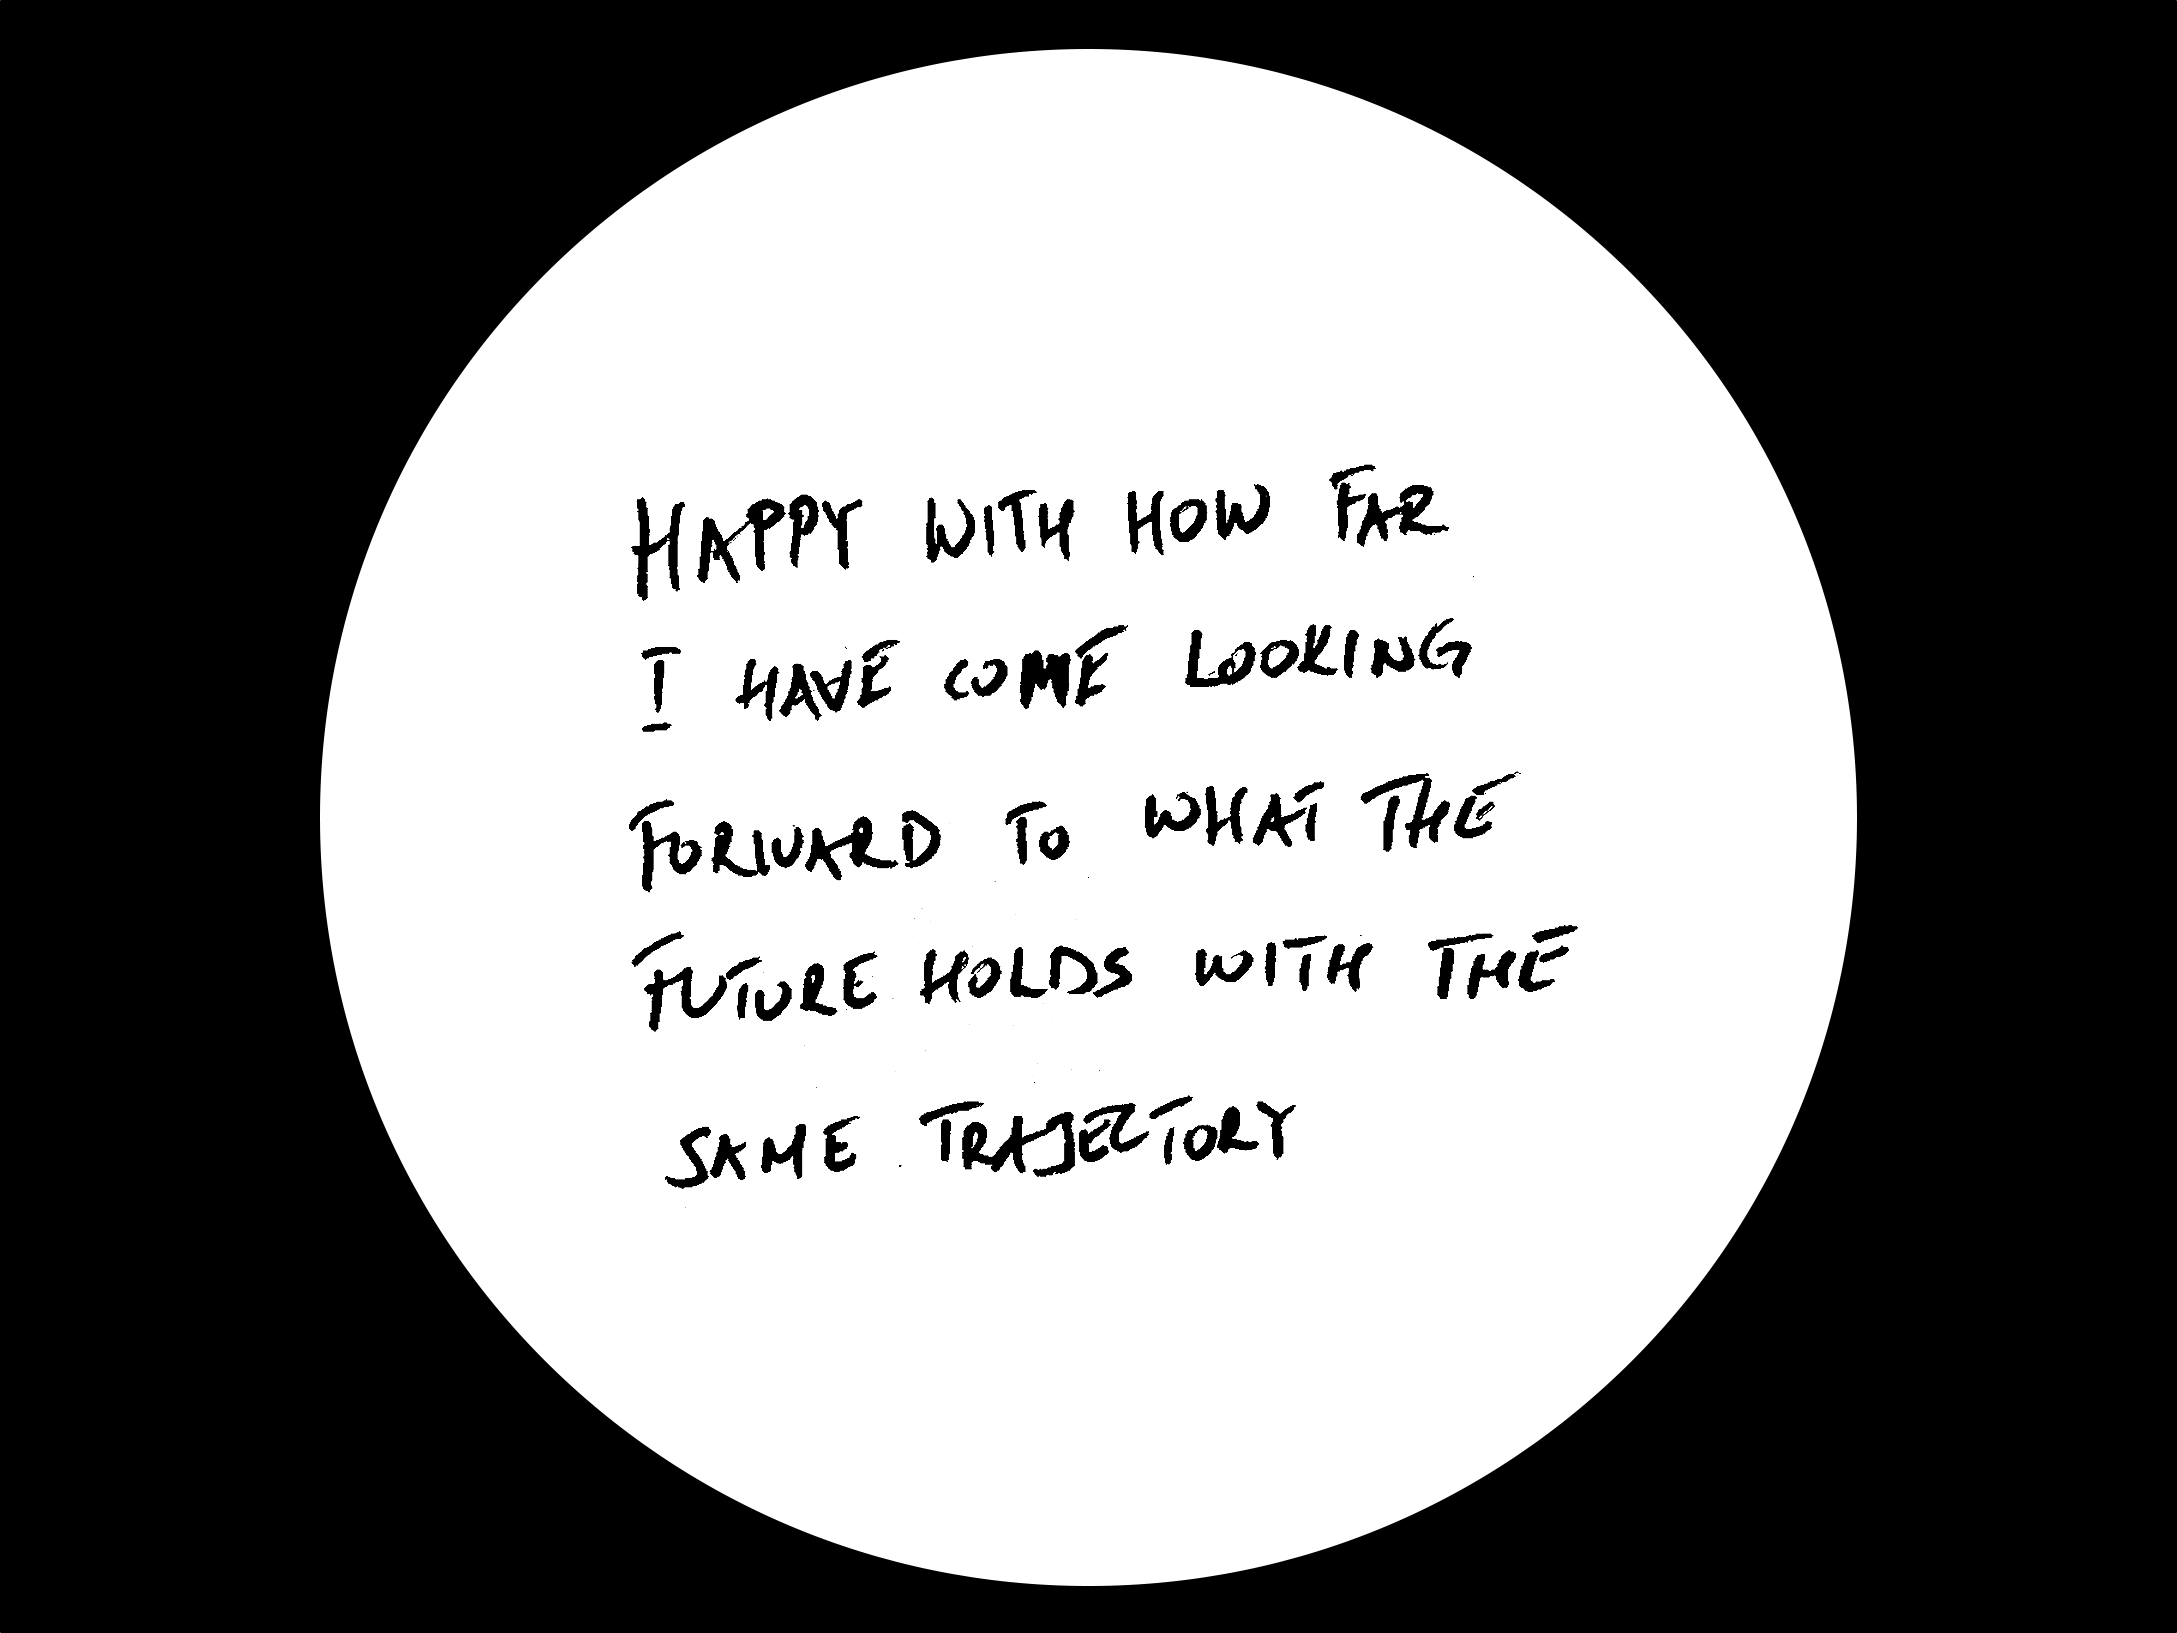 HAPPY WITH HOW FAR
I HAVE COME LOOKING
FORWARD TO WHAT THE
FUTURE HOLDS WITH THE
SAME TRAJECTORY